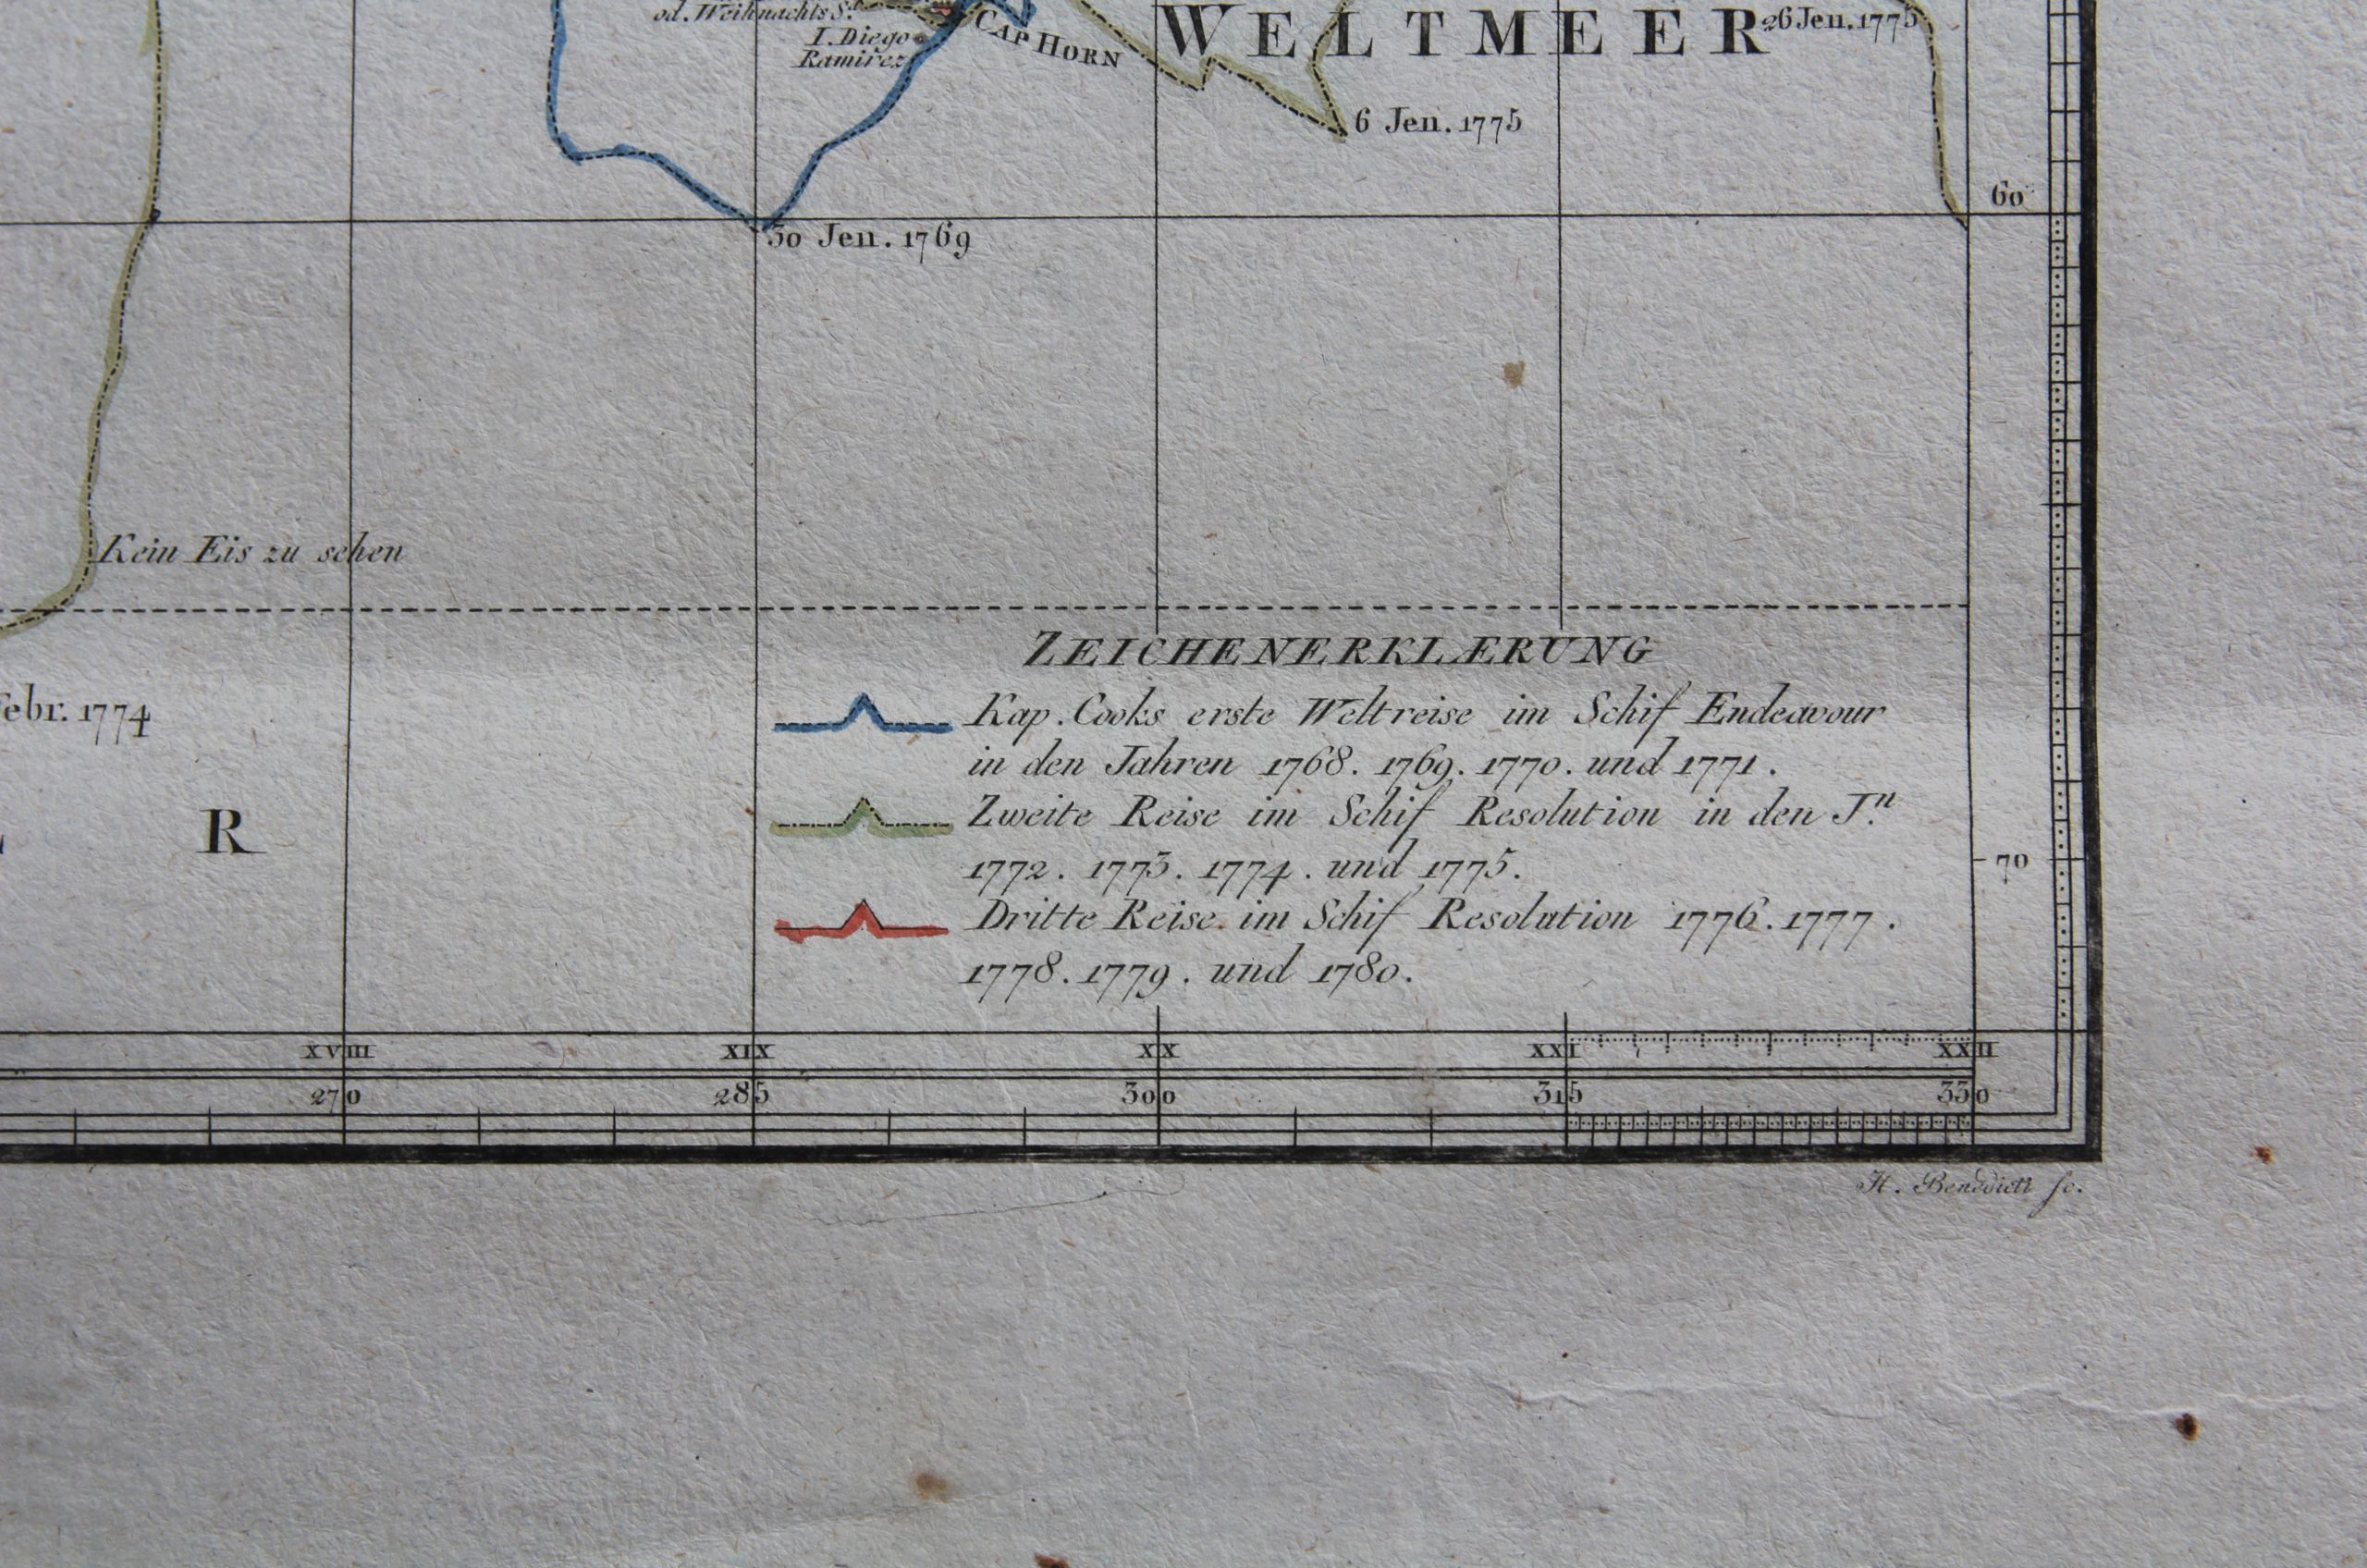 od. Weihnachts S.d
I. Diego
Ramirez
CAP HORN
WELTMEER
26 Jen. 1775
6 Jen. 1775
60
30 Jen. 1769
Kein Eis zu sehen
ZEICHENERKLÆRUNG
Kap. Cooks erste Weltreise im Schif Endeavour
in den Jahren 1768. 1769. 1770. und 1771.
Zweite Reise im Schif Resolution in den J.n
1772. 1773. 1774. und 1775.
Dritte Reise im Schif Resolution 1776. 1777.
1778. 1779. und 1780.
ebr. 1774
R
70
XVIII XIX XX XXI XXII
270 285 300 315 330
H. Benedict sc.